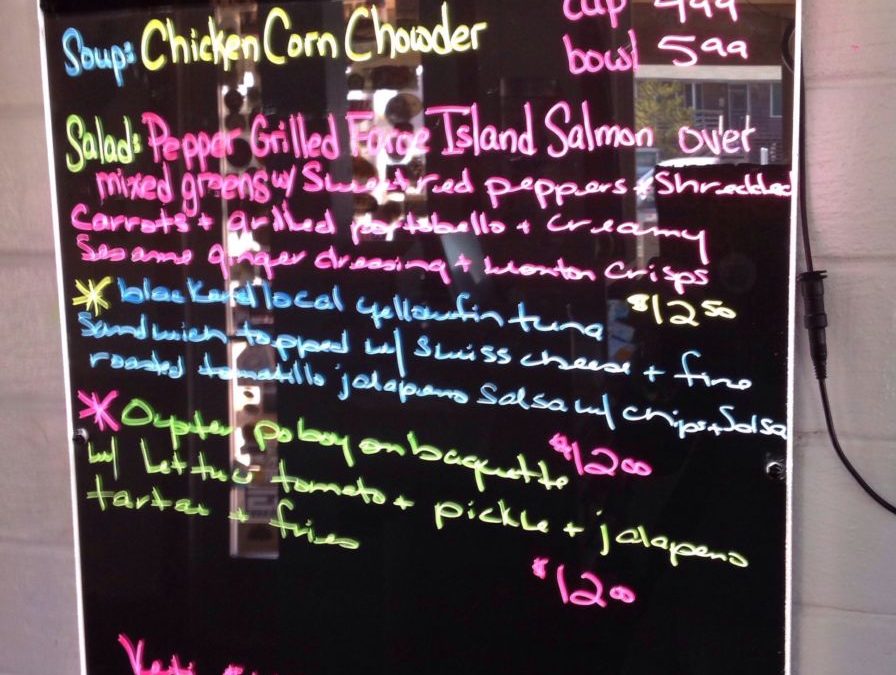 cup 499
Soup: Chicken Corn Chowder
bowl 599
Salad: Pepper Grilled Faroe Island Salmon over
mixed greens w/ Sweet red peppers + Shredded
Carrots + grilled portobello + creamy
Sesame ginger dressing + wonton crisps
$12 50
* blackened local yellowfin tuna
Sandwich topped w/ Swiss cheese + fire
roasted tomatillo jalapeno Salsa w/ chips + Salsa
$12 00
* Oyster po boy on baguette
w/ lettuce tomato + pickle + jalapeno
tartar + fries
$12 00